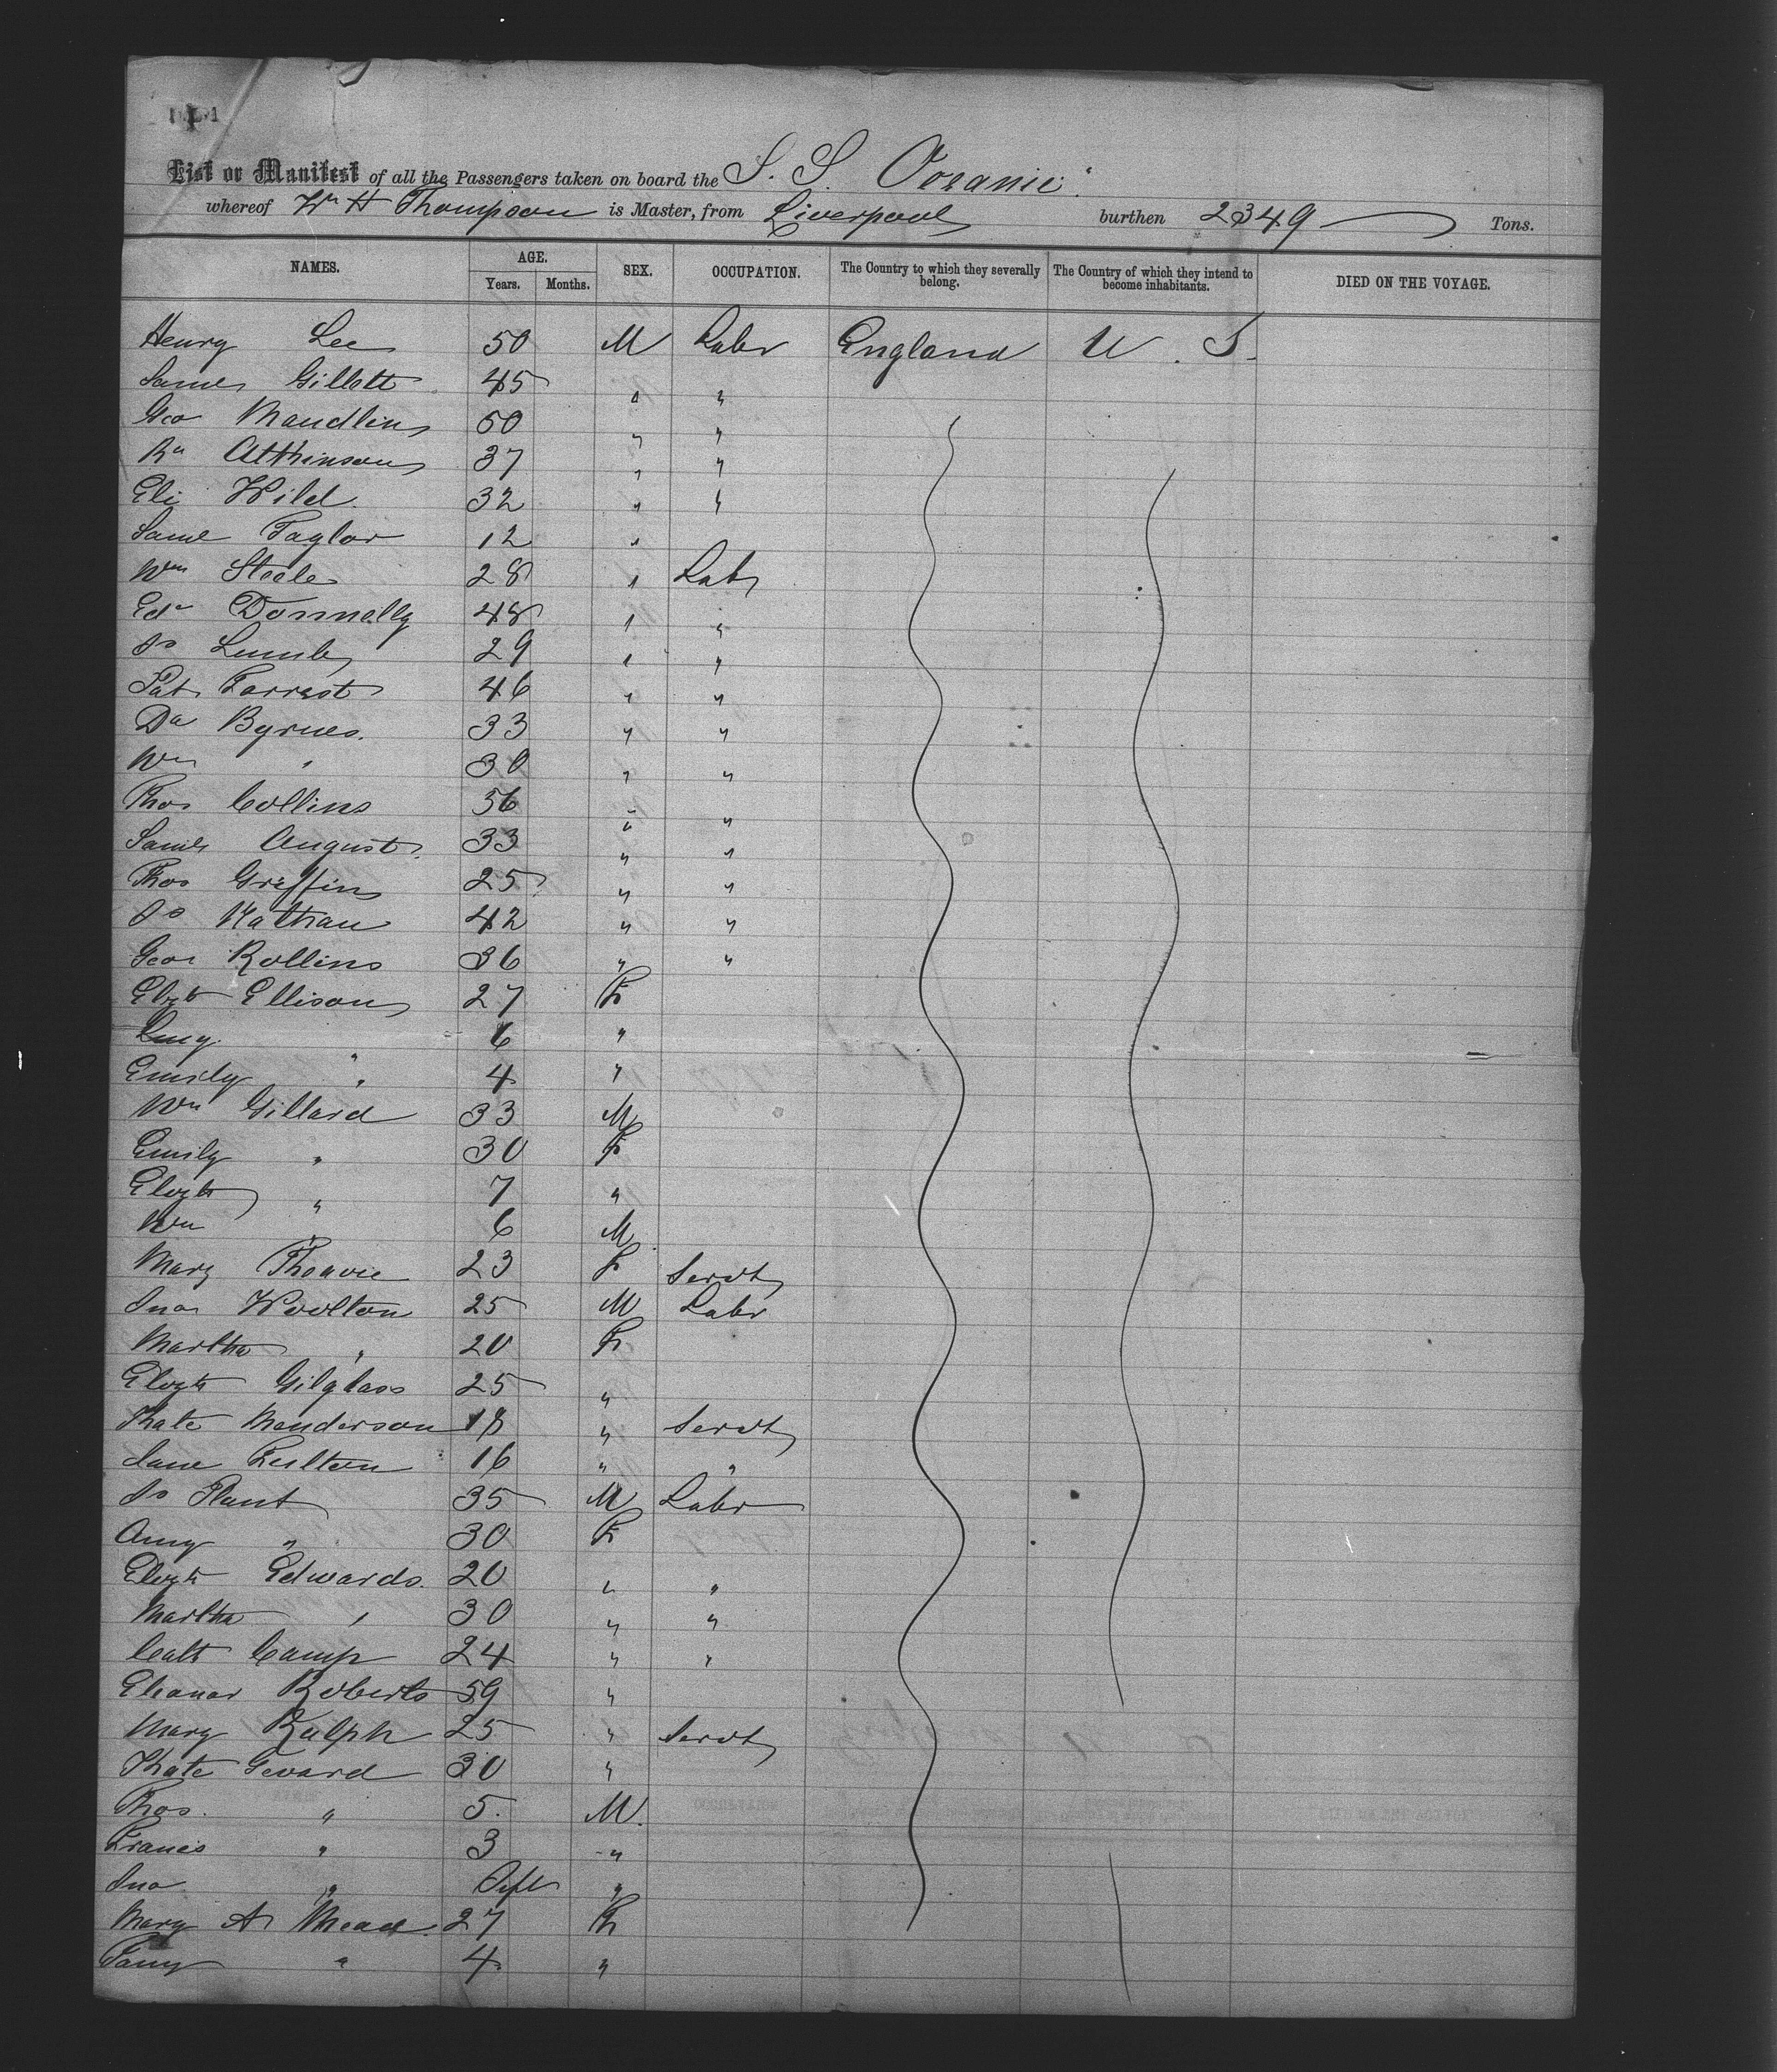 List or Manifest of all the Passengers taken on board the S. S. Oceanic
whereof Wm H Thompson is Master, from Liverpool burthen 2349 Tons.
NAMES. AGE. Years. Months. SEX. OCCUPATION. The Country to which they severally belong. The Country of which they intend to become inhabitants. DIED ON THE VOYAGE.
Henry Lee 50 M Labr England U. S.
Saml Gillett 45 " "
Geo Maudlin 50 " "
Rd Atkinson 37 " "
Eli Wild 32 " "
Saml Taylor 12 "
Wm Steele 28 " Labr
Edd Donnelly 48 " "
Js Lumb 29 " "
Pat Forrest 46 " "
Da Byrnes 33 " "
Wm " 30 " "
Thos Collins 36 " "
Saml August 33 " "
Thos Griffin 25 " "
Js Nathan 42 " "
Geo Rollins 36 " "
Elizth Ellison 27 F
Lucy " 6 "
Emily " 4 "
Wm Gillard 33 M
Emily " 30 F
Elizth " 7 "
Wm " 6 M
Mary 23 F Servt
Jno Woolton 25 M Labr
Martha " 20 F
Elizth Gilglass 25 "
Kate Menderson 18 " Servt
Jane Fulton 16 " "
Js Plant 35 M Labr
Amy " 30 F
Elizth Edwards 20 " "
Martha " 30 " "
Cath Camp 24 " "
Eleanor Roberts 59 "
Mary Ralph 25 " Servt
Kate Gevard 30 "
Thos. " 5 M.
Francis " 3 "
Jno " "
Mary A Mead 27 F
Fanny " 4 "